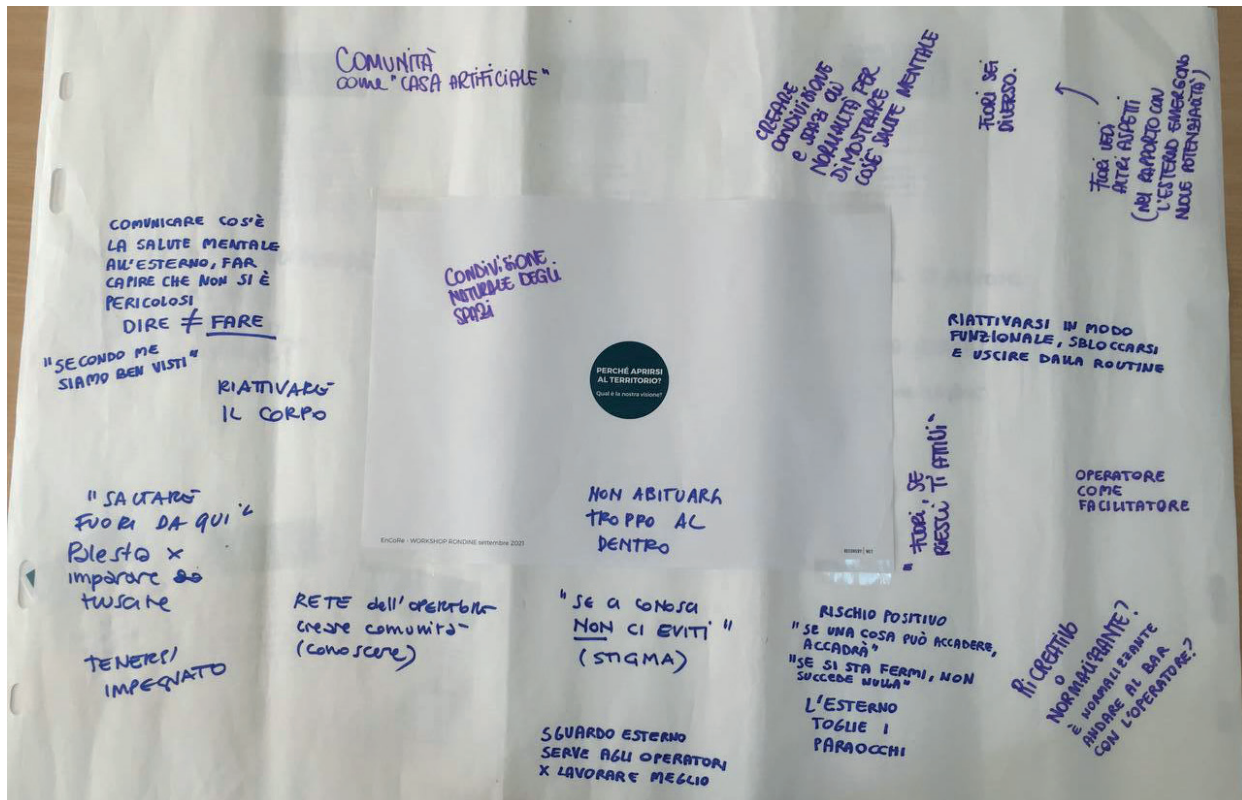 COMUNITÀ
come "CASA ARTIFICIALE"
CREARE
CONDIVISIONE
e SPAZI DI
NORMALITÀ PER
DIMOSTRARE
COS'È SALUTE MENTALE
FUORI SEI
DIVERSO.
FUORI VEDI
ALTRI ASPETTI
(NEL RAPPORTO CON
L'ESTERNO EMERGONO
NUOVE POTENZIALITÀ)
COMUNICARE COS'È
LA SALUTE MENTALE
ALL'ESTERNO, FAR
CAPIRE CHE NON SI È
PERICOLOSI
DIRE ≠ FARE
"SECONDO ME
SIAMO BEN VISTI"
RIATTIVARE
IL CORPO
CONDIVISIONE
NATURALE DEGLI
SPAZI
PERCHÉ APRIRSI
AL TERRITORIO?
Qual è la nostra visione?
RIATTIVARSI IN MODO
FUNZIONALE, SBLOCCARSI
E USCIRE DALLA ROUTINE
"FUORI, SE
RIESCI TI ATTIVI"
OPERATORE
COME
FACILITATORE
NON ABITUARSI
TROPPO AL
DENTRO
EnCoRe - WORKSHOP RONDINE settembre 2021
RECOVERY | NET
"SALTARE
FUORI DA QUI"
Palestra x
imparare
TENERSI
IMPEGNATO
RETE dell'OPERATORE
creare comunità
(conoscere)
"SE CI CONOSCI
NON CI EVITI"
(STIGMA)
SGUARDO ESTERNO
SERVE AGLI OPERATORI
X LAVORARE MEGLIO
RISCHIO POSITIVO
"SE UNA COSA PUÒ ACCADERE,
ACCADRÀ"
"SE SI STA FERMI, NON
SUCCEDE NULLA"
L'ESTERNO
TOGLIE I
PARAOCCHI
RICREATIVO
O
NORMALIZZANTE?
È NORMALIZZANTE
ANDARE AL BAR
CON L'OPERATORE?